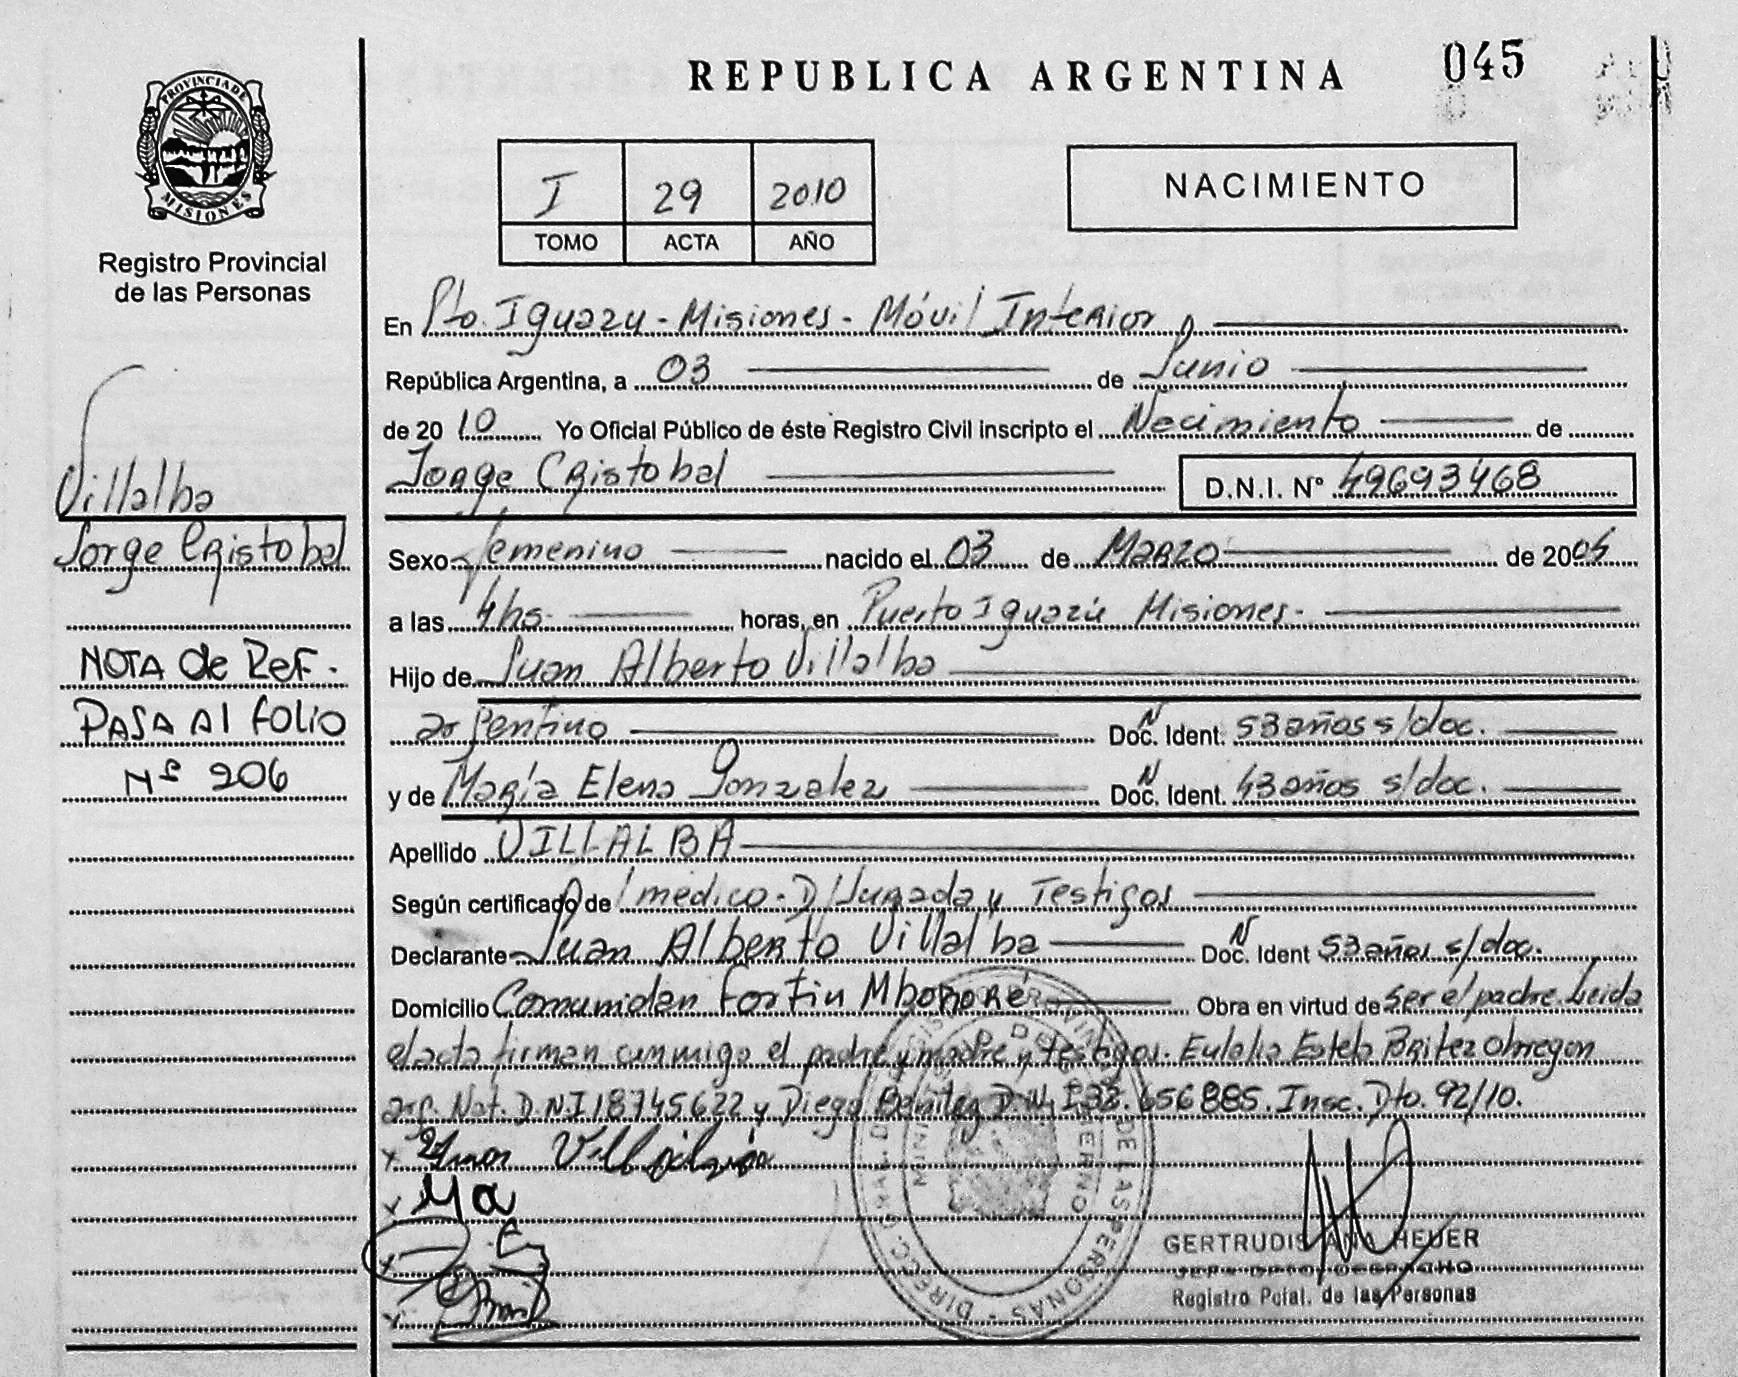 REPUBLICA ARGENTINA
045
PROVINCIA DE MISIONES
Registro Provincial
de las Personas
I 29 2010
TOMO ACTA AÑO
NACIMIENTO
Villalba
Jorge Cristobal
NOTA de Ref.
PASA Al folio
Nº 206
En Pto. Iguazu - Misiones - Móvil Interior
República Argentina, a 03 de Junio
de 2010 Yo Oficial Público de éste Registro Civil inscripto el Nacimiento de
Jorge Cristobal D.N.I. N° 49693468
Sexo femenino nacido el 03 de Marzo de 2005
a las 4hs. horas, en Puerto Iguazú Misiones.
Hijo de Juan Alberto Villalba
argentino Doc. Ident. 53 años s/doc.
y de María Elena Gonzalez Doc. Ident. 43 años s/doc.
Apellido VILLALBA
Según certificado de médico - D/Jurada y Testigos
Declarante Juan Alberto Villalba Doc. Ident 53 años s/doc.
Domicilio Comunidan Fortin Mbororé Obra en virtud de ser el padre. Leida
el acta firman conmigo el padre y madre y testigos. Eulalia Estela Britez Obregon
arg. Nat. D.N.I 18745622 y Diego Benitez D.N.I 33.656885. Insc. Dto. 92/10.
Juan
Ma
GERTRUDIS ANA HEUER
JEFA DPTO. DESPACHO
Registro Pcial. de las Personas